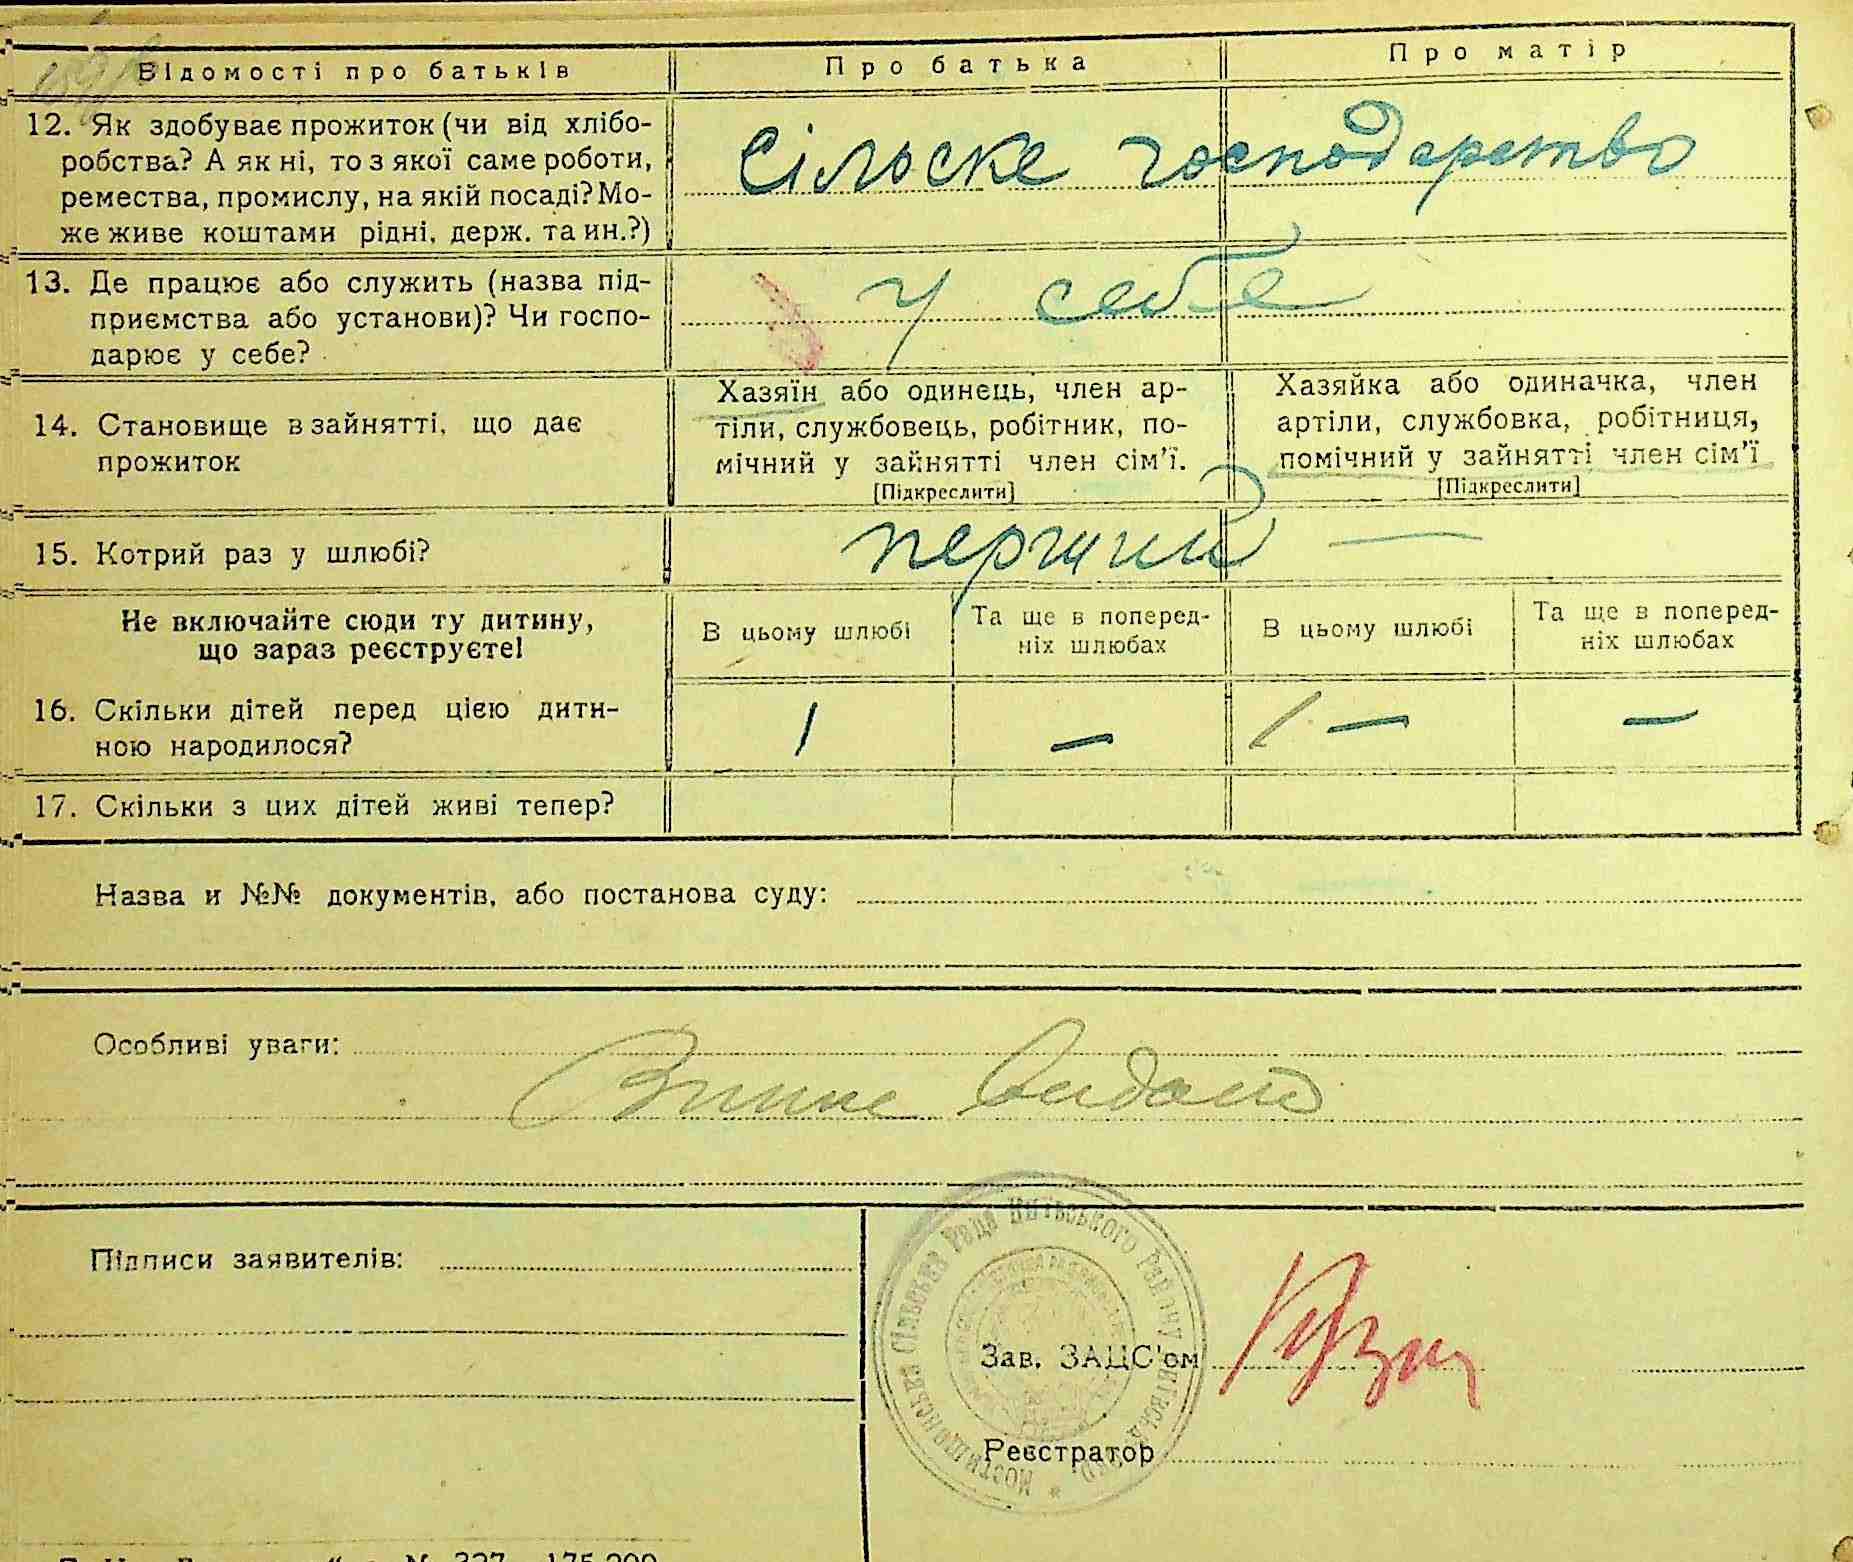 Відомості про батьків
Про батька
Про матір
12. Як здобуває прожиток (чи від хлібо-
робства? А як ні, то з якої саме роботи,
ремества, промислу, на якій посаді? Мо-
же живе коштами рідні, держ. та ин.?)
Сільске господарство
13. Де працює або служить (назва під-
приємства або установи)? Чи госпо-
дарює у себе?
у себе
14. Становище в зайнятті, що дає
прожиток
Хазяїн або одинець, член ар-
тіли, службовець, робітник, по-
мічний у зайнятті член сім'ї.
[Підкреслити]
Хазяйка або одиначка, член
артіли, службовка, робітниця,
помічний у зайнятті член сім'ї
[Підкреслити]
15. Котрий раз у шлюбі?
перший —
Не включайте сюди ту дитину,
що зараз реєструєте!
В цьому шлюбі
Та ще в поперед-
ніх шлюбах
В цьому шлюбі
Та ще в поперед-
ніх шлюбах
16. Скільки дітей перед цією дити-
ною народилося?
1 — 1 — —
17. Скільки з цих дітей живі тепер?
Назва и №№ документів, або постанова суду:
Особливі уваги:
видано
Підписи заявителів:
Сільська Рада
Зав. ЗАЦС'ом
Реєстратор
№ 327—175.200